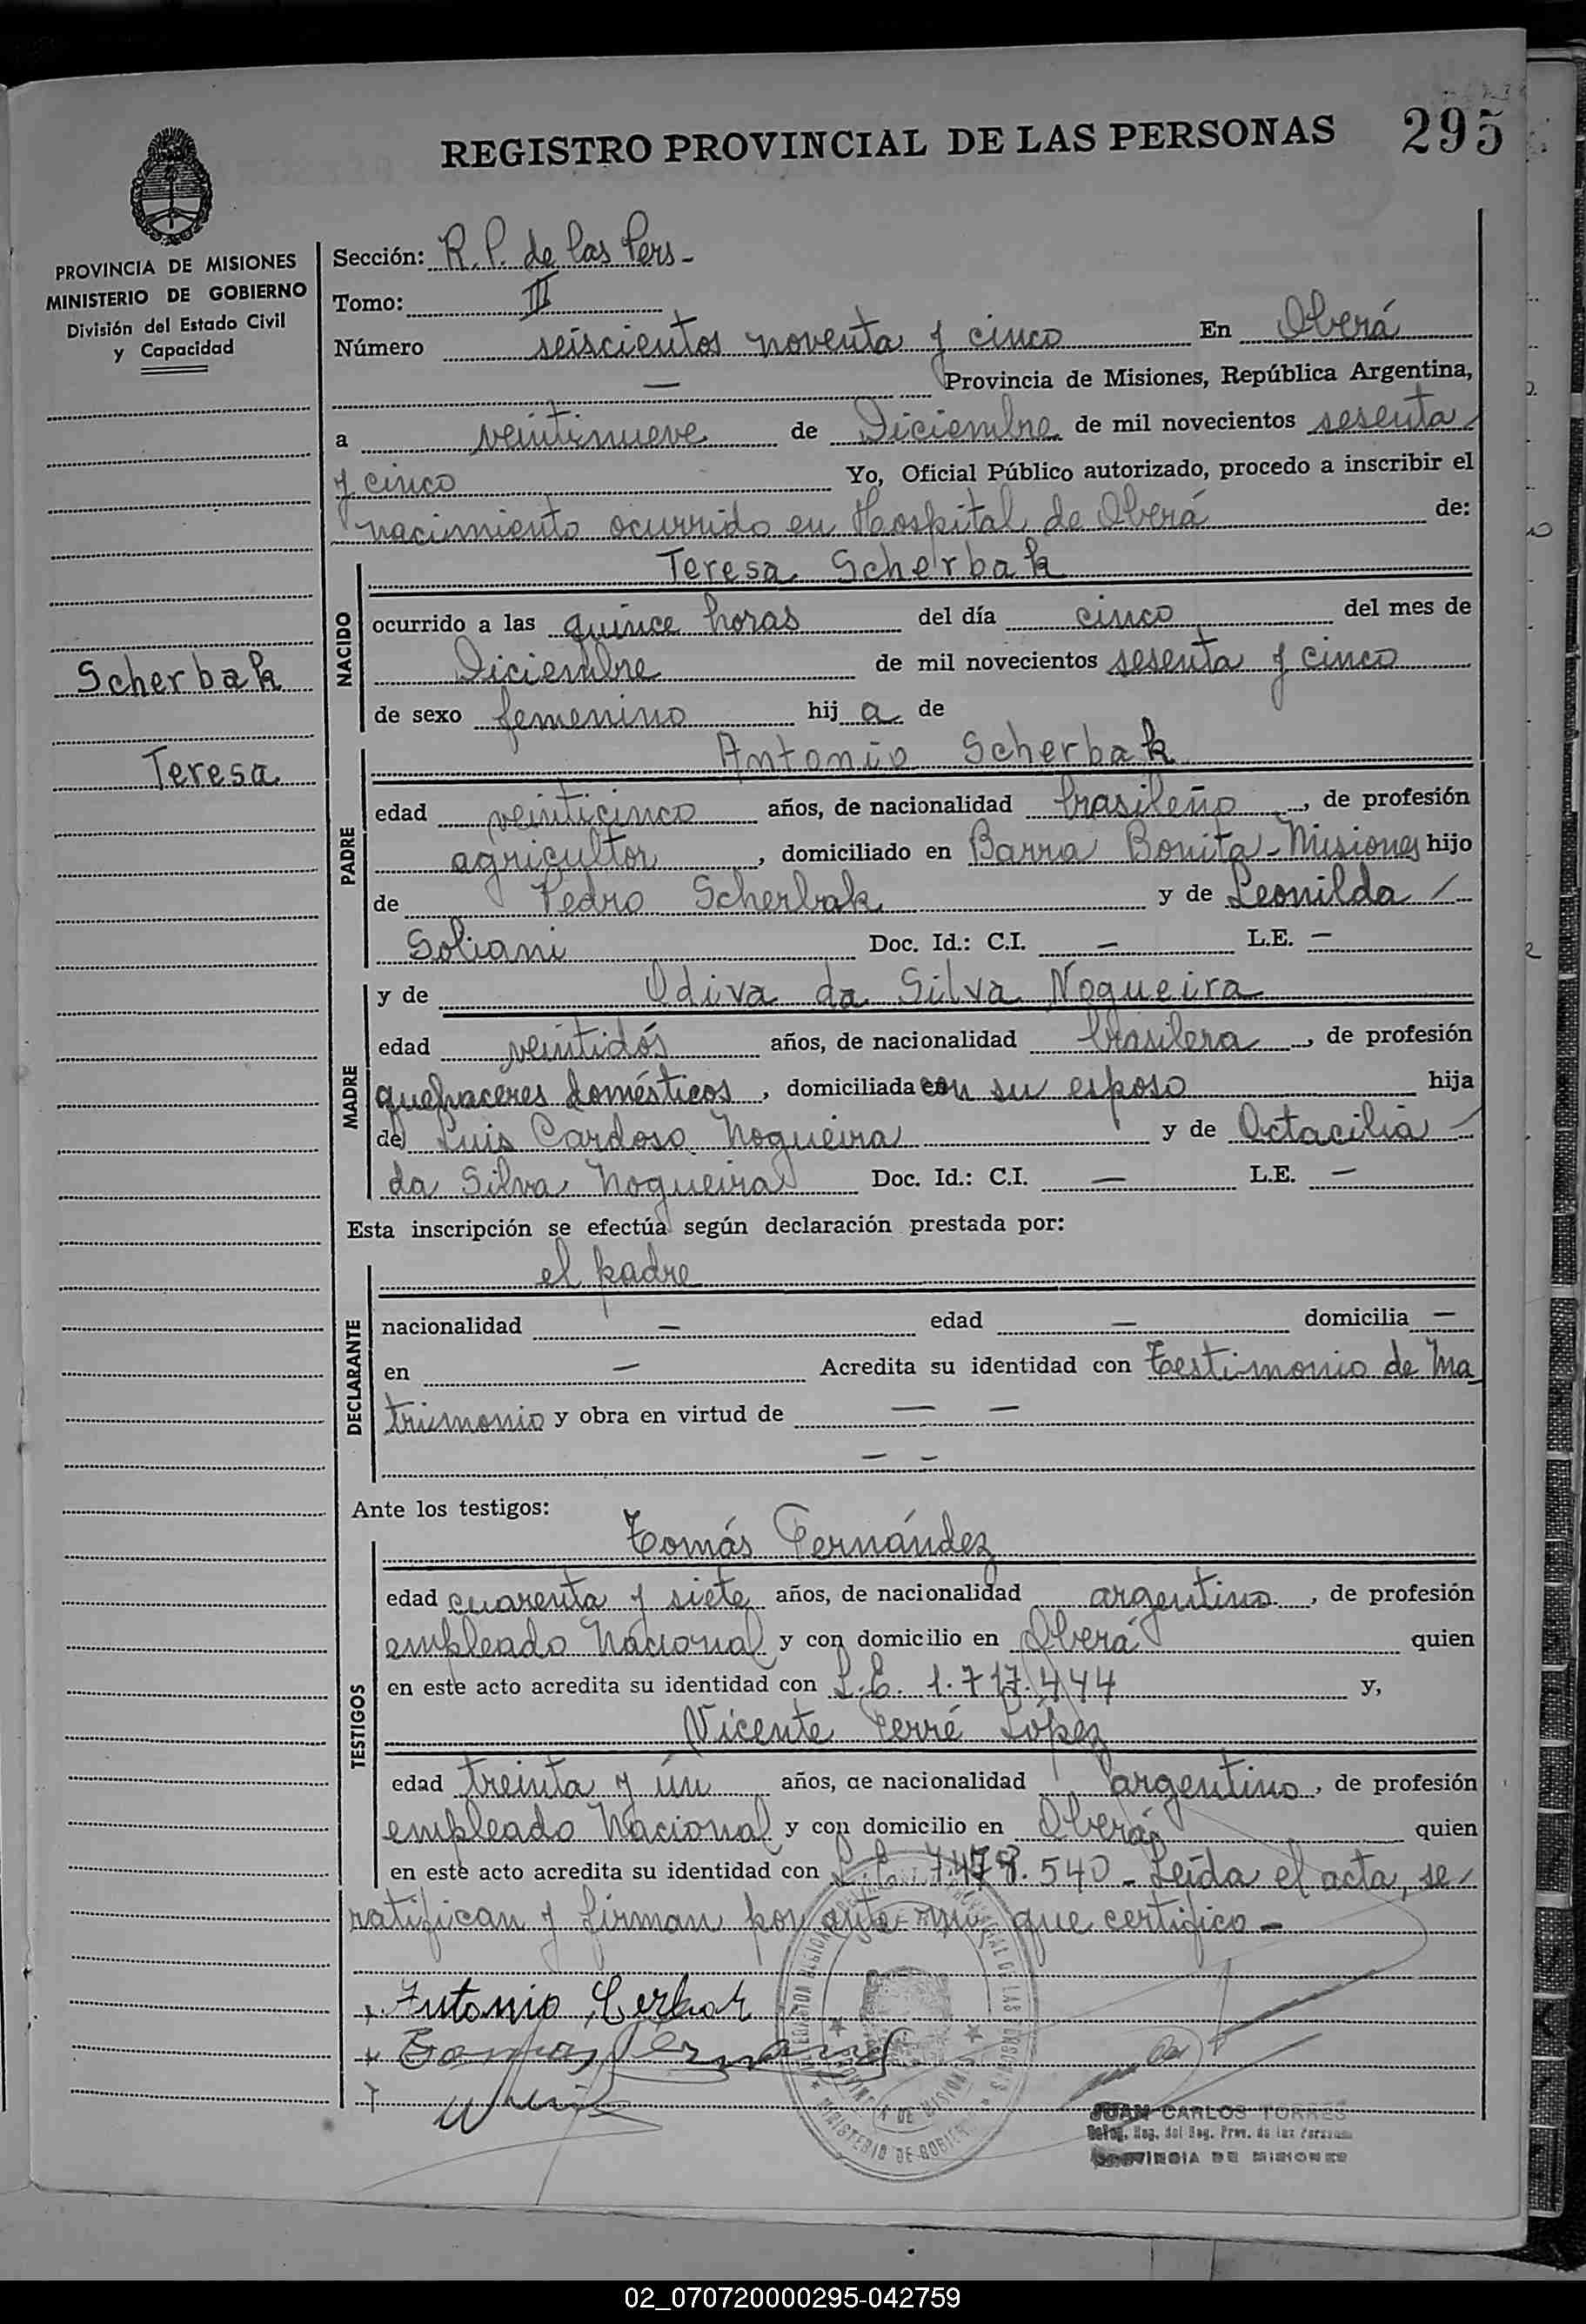 REGISTRO PROVINCIAL DE LAS PERSONAS 295
PROVINCIA DE MISIONES
MINISTERIO DE GOBIERNO
División del Estado Civil
y Capacidad
Scherbak
Teresa
Sección: R. P. de las Pers -
Tomo: III
Número seiscientos noventa y cinco En Oberá
— Provincia de Misiones, República Argentina,
a veintinueve de Diciembre de mil novecientos sesenta
y cinco Yo, Oficial Público autorizado, procedo a inscribir el
nacimiento ocurrido en Hospital de Oberá de:
Teresa Scherbak
NACIDO
ocurrido a las quince horas del día cinco del mes de
Diciembre de mil novecientos sesenta y cinco
de sexo femenino hij a de
Antonio Scherbak
PADRE
edad veinticinco años, de nacionalidad brasileño, de profesión
agricultor, domiciliado en Barra Bonita - Misiones hijo
de Pedro Scherbak y de Leonilda /
Soliani Doc. Id.: C.I. — L.E. —
MADRE
y de Odiva da Silva Nogueira
edad veintidós años, de nacionalidad brasilera, de profesión
quehaceres domésticos, domiciliada con su esposo hija
de Luis Cardoso Nogueira y de Octacilia /
da Silva Nogueira Doc. Id.: C.I. — L.E. —
Esta inscripción se efectúa según declaración prestada por:
el padre
DECLARANTE
nacionalidad — edad — domicilia —
en — Acredita su identidad con Testimonio de Ma
trimonio y obra en virtud de — —
— —
Ante los testigos:
Tomás Fernández
TESTIGOS
edad cuarenta y siete años, de nacionalidad argentino, de profesión
empleado Nacional y con domicilio en Oberá quien
en este acto acredita su identidad con L.E. 1.717.444 y,
Vicente Ferré López
edad treinta y ún años, de nacionalidad argentino, de profesión
empleado Nacional y con domicilio en Oberá quien
en este acto acredita su identidad con L.E. 7.478.540 - Leída el acta, se /
ratifican y firman por ante mí que certifico -
Antonio Cerbak
Tomás Fernández
JUAN CARLOS TORRES
PROVINCIA DE MISIONES
MINISTERIO DE GOBIERNO
02_070720000295-042759